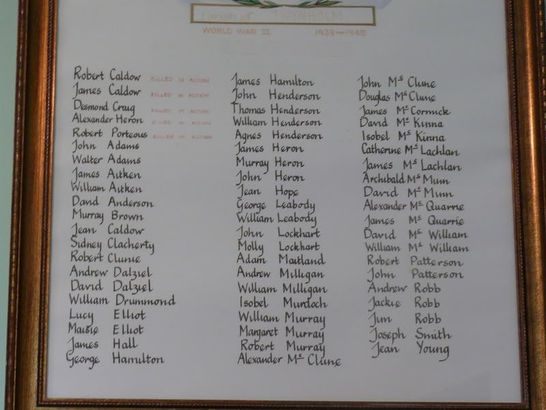 WORLD WAR II 1939-1945
Robert Caldow KILLED IN ACTION
James Caldow KILLED IN ACTION
Desmond Craig KILLED IN ACTION
Alexander Heron KILLED IN ACTION
Robert Porteous KILLED IN ACTION
John Adams
Walter Adams
James Aitken
William Aitken
David Anderson
Murray Brown
Jean Caldow
Sidney Clacherty
Robert Clunie
Andrew Dalziel
David Dalziel
William Drummond
Lucy Elliot
Maisie Elliot
James Hall
George Hamilton
James Hamilton
John Henderson
Thomas Henderson
William Henderson
Agnes Henderson
James Heron
Murray Heron
John Heron
Jean Hope
George Leabody
William Leabody
John Lockhart
Molly Lockhart
Adam Maitland
Andrew Milligan
William Milligan
Isobel Murdoch
William Murray
Margaret Murray
Robert Murray
Alexander Mc Clune
John Mc Clune
Douglas Mc Clune
James Mc Cormick
David Mc Kinna
Isobel Mc Kinna
Catherine Mc Lachlan
James Mc Lachlan
Archibald Mc Munn
David Mc Munn
Alexander Mc Quarrie
James Mc Quarrie
David Mc William
William Mc William
Robert Patterson
John Patterson
Andrew Robb
Jackie Robb
Jim Robb
Joseph Smith
Jean Young